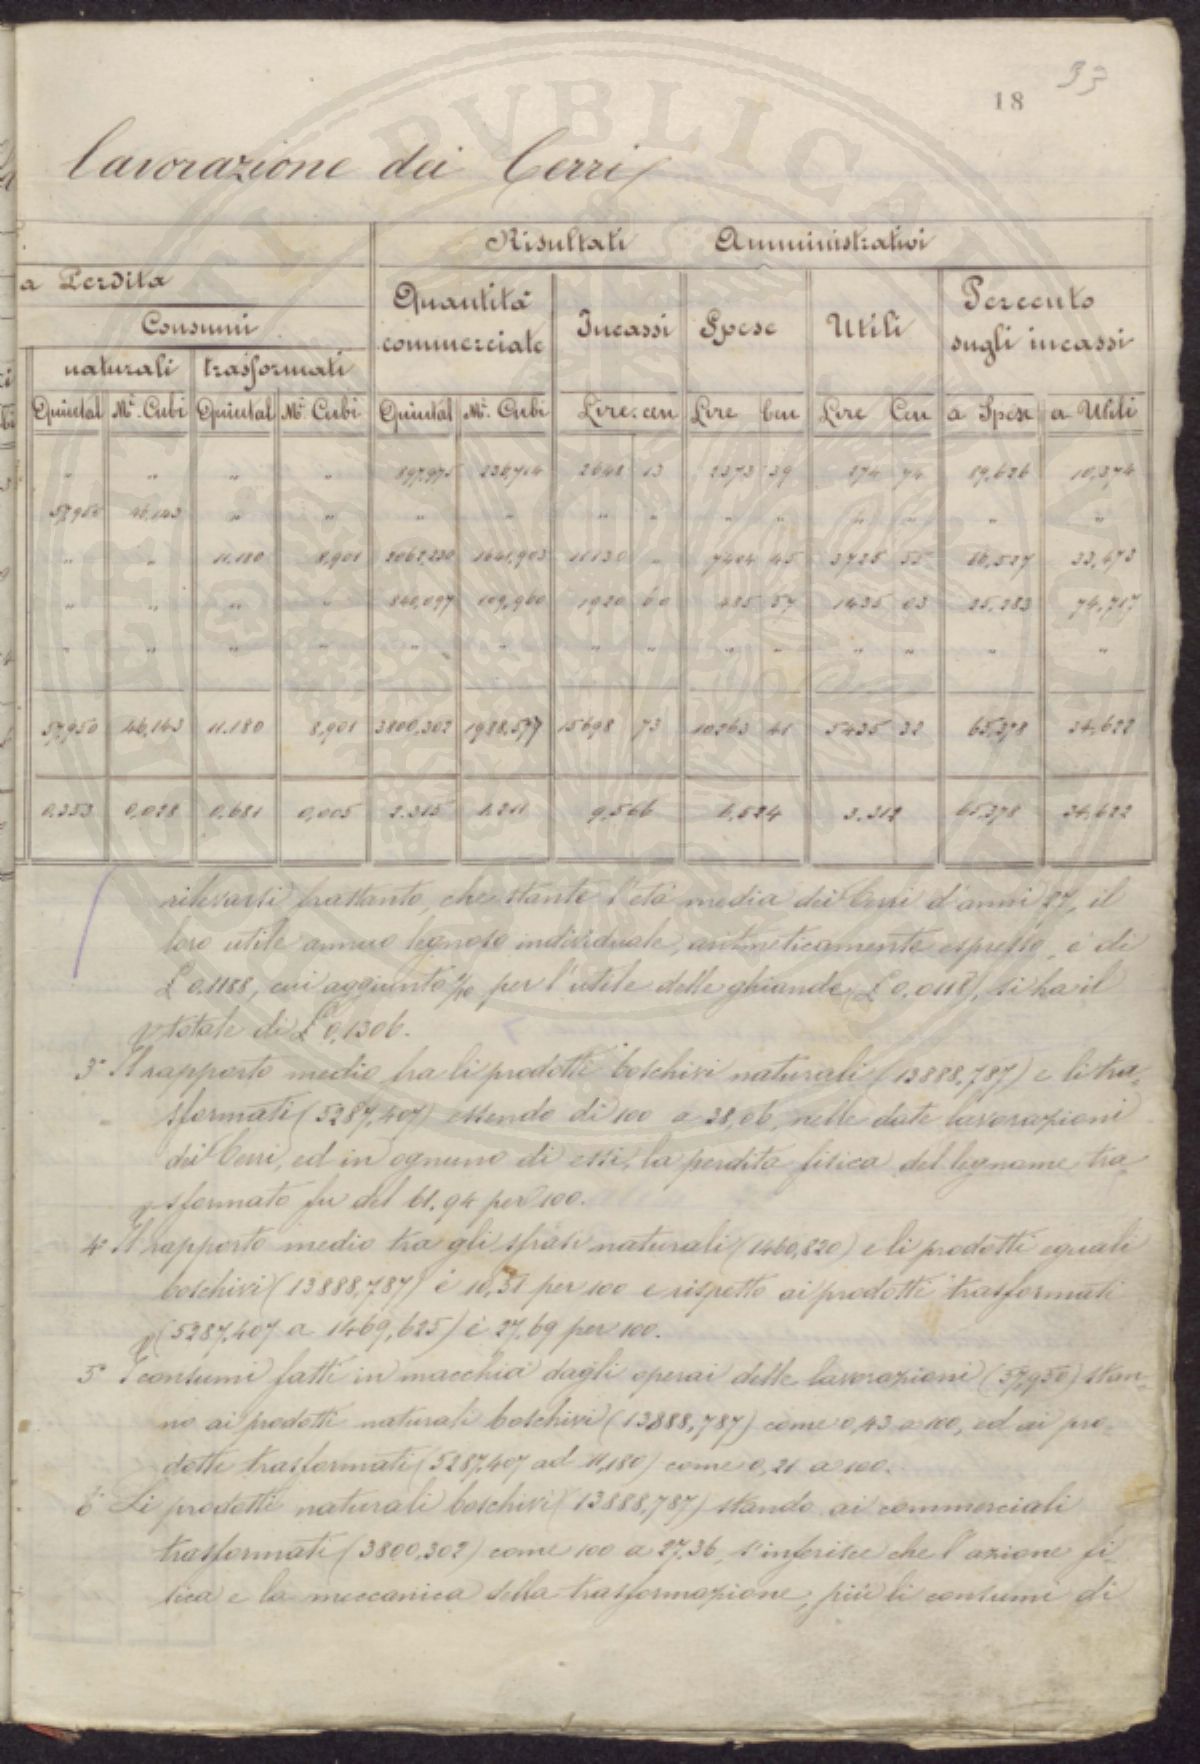 33
18
lavorazione dei Cerri
Risultati Amministrativi
a Perdita
Consumi
Quantità commerciate
Incassi
Spese
Utili
Percento sugli incassi
naturali trasformati
Quintal Mi. Cubi Quintal Mi. Cubi Quintal Mi. Cubi Lire. cen Lire Cen Lire Cen a Spese a Utili
" " " " 897,975 236,714 2648 13 2373 39 274 74 89,626 10,374
57,950 46,143 " " " " " " " " " " " "
" " 11.180 8,901 2062,230 1641,903 11130 " 7404 45 3725 55 66,527 33,473
" " " " 840,097 109,960 1920 60 485 57 1435 03 25.283 74,717
" " " " " " " " " " " " " "
57,950 46,143 11.180 8,901 3800,302 1988,577 15698 73 10263 41 5435 32 65,378 34,622
0,353 0,028 0,681 0,005 2.315 1.211 9,566 6,524 3.312 65,378 34,622
rilevarsi frattanto, che stante l'età media dei Cerri d'anni 27, il
loro utile annuo legnoso individuale, aritmeticamente espresso, è di
£ 0.1188, cui aggiunto 1/10 per l'utile delle ghiande (£ 0,0118), si ha il
totale di £ 0,1306.
3° Il rapporto medio fra li prodotti boschivi naturali (13888,787) e li tra-
sformati (5287,407) essendo di 100 a 38,06, nelle date lavorazioni
dei Cerri, ed in ognuno di essi, la perdita fisica del legname tra-
sformato fu del 61.94 per 100.
4° Il rapporto medio tra gli sfrasi naturali (1460,820) e li prodotti eguali
boschivi (13888,787) è 10,51 per 100 e rispetto ai prodotti trasformati
(5287,407 a 1469,625) è 27,69 per 100.
5° I consumi fatti in macchia dagli operai delle lavorazioni (57,950) stan-
no ai prodotti naturali boschivi (13888,787) come 0,43 a 100, ed ai pro-
dotti trasformati (5287,407 ad 11,180) come 0,21 a 100.
6° Li prodotti naturali boschivi (13888,787) stando ai commerciali
trasformati (3800,302) come 100 a 27,36, s'inferisce che l'azione fi-
sica e la meccanica della trasformazione, più li consumi di